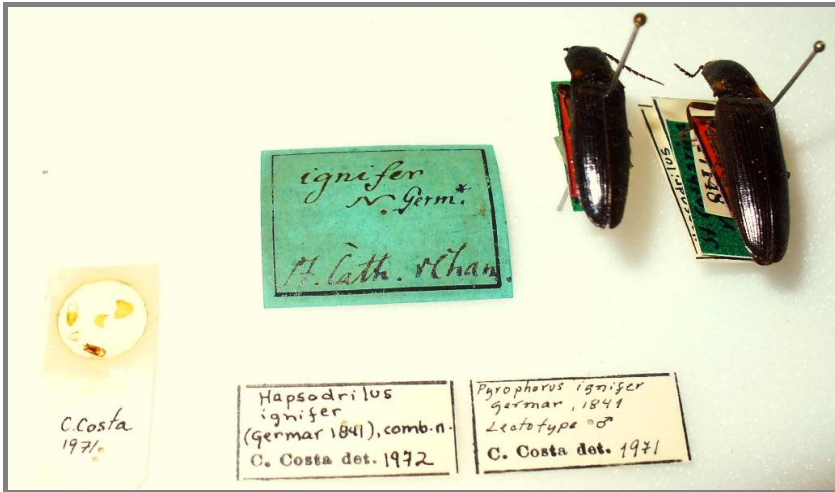 ignifer
N. Germ.*
St. Cath. v Cham.
C. Costa
1971.
Hapsodrilus
ignifer
(Germar 1841), comb.n.
C. Costa det. 1972
Pyrophorus ignifer
Germar, 1841
Lectotype ♂
C. Costa det. 1971